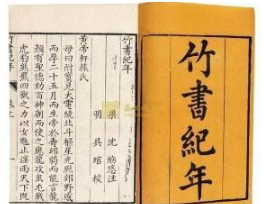 竹書紀年
梁 沈約注
明 吳琯校
黃帝軒轅氏
母曰附寶見大電繞北斗樞星光照郊野感
而孕二十五月而生帝於壽丘弱而能言龍
顏有聖德劾百神朝而使之應龍攻蚩尤戰
虎豹熊羆四獸之力以女魃止淫雨天下既
竹書紀年